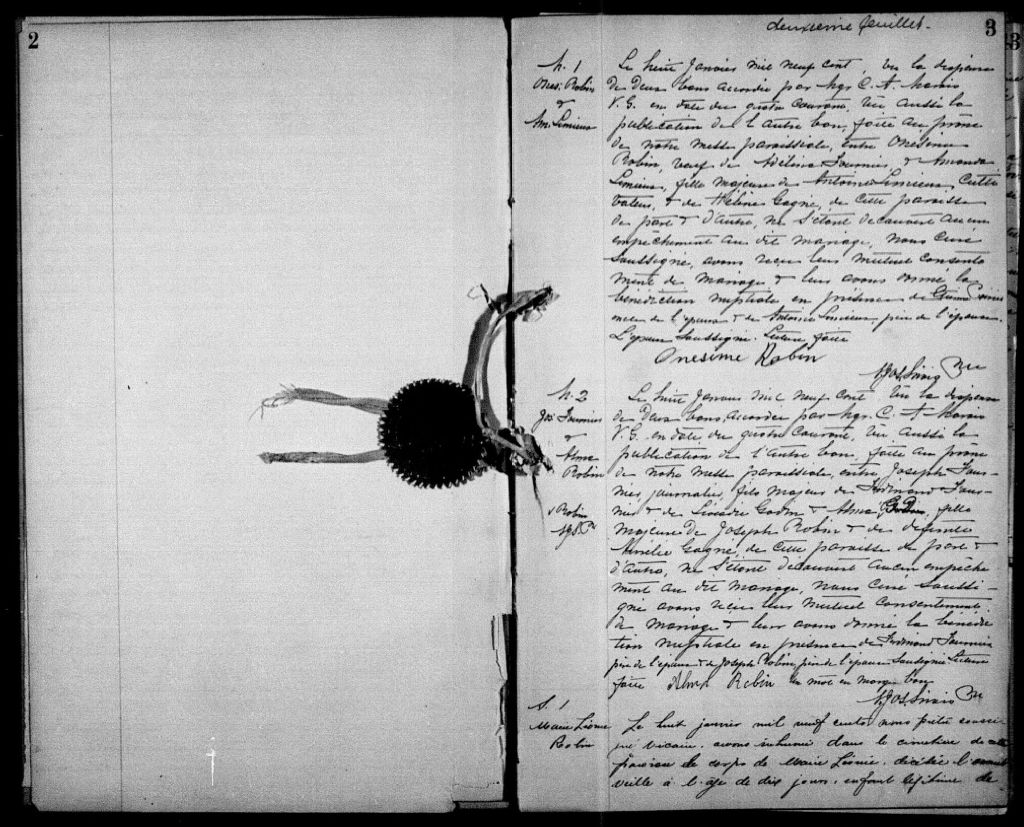 2
deuxième feuillet
3
M. 1
Ones: Robin
&
Am. Lemieux
Le huit Janvier mil neuf cent, vu la dispense
de deux bans accordée par Mgr. C. A. Marois
V. G. en date du quatre courant, vu aussi la
publication de l'autre ban faite au prône
de notre messe paroissiale, entre Onésime
Robin, veuf de Adélina Fournier, & Amanda
Lemieux, fille majeure de Antoine Lemieux, culti
vateur, & de Hélène Gagné, de cette paroisse
de part & d'autre, ne s'étant découvert aucun
empêchement au dit mariage, nous curé
soussigné, avons reçu leur mutuel consente
ment de mariage & leur avons donné la
bénédiction nuptiale en présence de
oncle de l'époux & de Antoine Lemieux père de l'épouse.
L'époux soussigné. Lecture faite
Onesime Robin
Ptre
M. 2
Jos: Fournier
&
Alma
Robin
Le huit Janvier mil neuf cent vu la dispense
de deux bans, accordée par Mgr. C. A. Marois
V. G. en date du quatre courant, vu aussi la
publication de l'autre ban, faite au prône
de notre messe paroissiale, entre Joseph Four-
nier, journalier, fils majeur de Ferdinand Four-
nier & de Godin & Alma, fille
v Robin
majeure de Joseph Robin & de défunte
Aurélie Gagné, de cette paroisse de part &
d'autre, ne s'étant découvert aucun empêche
ment au dit mariage, nous curé soussi-
gné avons reçu leur mutuel consentement
de mariage & leur avons donné la bénédic
tion nuptiale en présence de Ferdinand Fournier
père de l'époux & de Joseph Robin, père de l'épouse soussignée Lecture
faite Alma Robin un mot en marge bon
Ptre
S. 1
Marie Léonie
Robin
Le huit janvier mil neuf cents nous prêtre soussi
gné vicaire, avons inhumé dans le cimetière de cette
paroisse le corps de Marie Léonie, décédée l'avant
veille à l'âge de dix jours, enfant légitime de